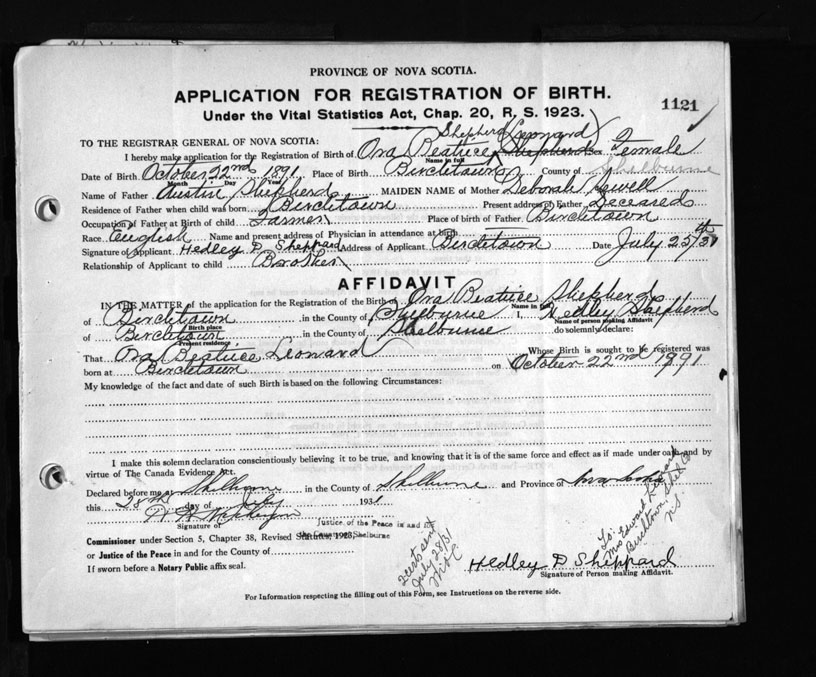 PROVINCE OF NOVA SCOTIA.
APPLICATION FOR REGISTRATION OF BIRTH.
Under the Vital Statistics Act, Chap. 20, R. S. 1923.
1121
TO THE REGISTRAR GENERAL OF NOVA SCOTIA:
Shepherd (Leonard)
I hereby make application for the Registration of Birth of Ora Beatrice Shepherd Sex Female
Name in full
Date of Birth October 22nd 1891 Place of Birth Birchtown County of Shelburne
Month Day Year
Name of Father Austin Shepherd MAIDEN NAME of Mother Deborah
Residence of Father when child was born Birchtown Present address of Father Deceased
Occupation of Father at Birth of child Farmer Place of birth of Father Birchtown
Race English Name and present address of Physician in attendance at birth
Signature of Applicant Hedley D. Sheppard Address of Applicant Birchtown Date July 25th/31
Relationship of Applicant to child Brother
AFFIDAVIT
IN THE MATTER of the application for the Registration of the Birth of Ora Beatrice Shepherd
Name in full
of Birchtown in the County of Shelburne I, Hedley Shepherd
Birth place Name of person making Affidavit
of Birchtown in the County of Shelburne do solemnly declare:
Present residence
That Ora Beatrice Leonard Whose Birth is sought to be registered was
born at Birchtown on October 22nd 1891
My knowledge of the fact and date of such Birth is based on the following Circumstances:
I make this solemn declaration conscientiously believing it to be true, and knowing that it is of the same force and effect as if made under oath and by
virtue of The Canada Evidence Act.
Declared before me at Shelburne in the County of Shelburne and Province of Nova Scotia
this 28th day of July 1931
Signature of
Justice of the Peace in and for
the County of Shelburne
Commissioner under Section 5, Chapter 38, Revised Statutes, 1923,
or Justice of the Peace in and for the County of
If sworn before a Notary Public affix seal.
sent
July 28/31
To:
Mr Edward Leonard
Birchtown Shel Co
NS
Hedley D Sheppard
Signature of Person making Affidavit.
For Information respecting the filling out of this Form, see Instructions on the reverse side.